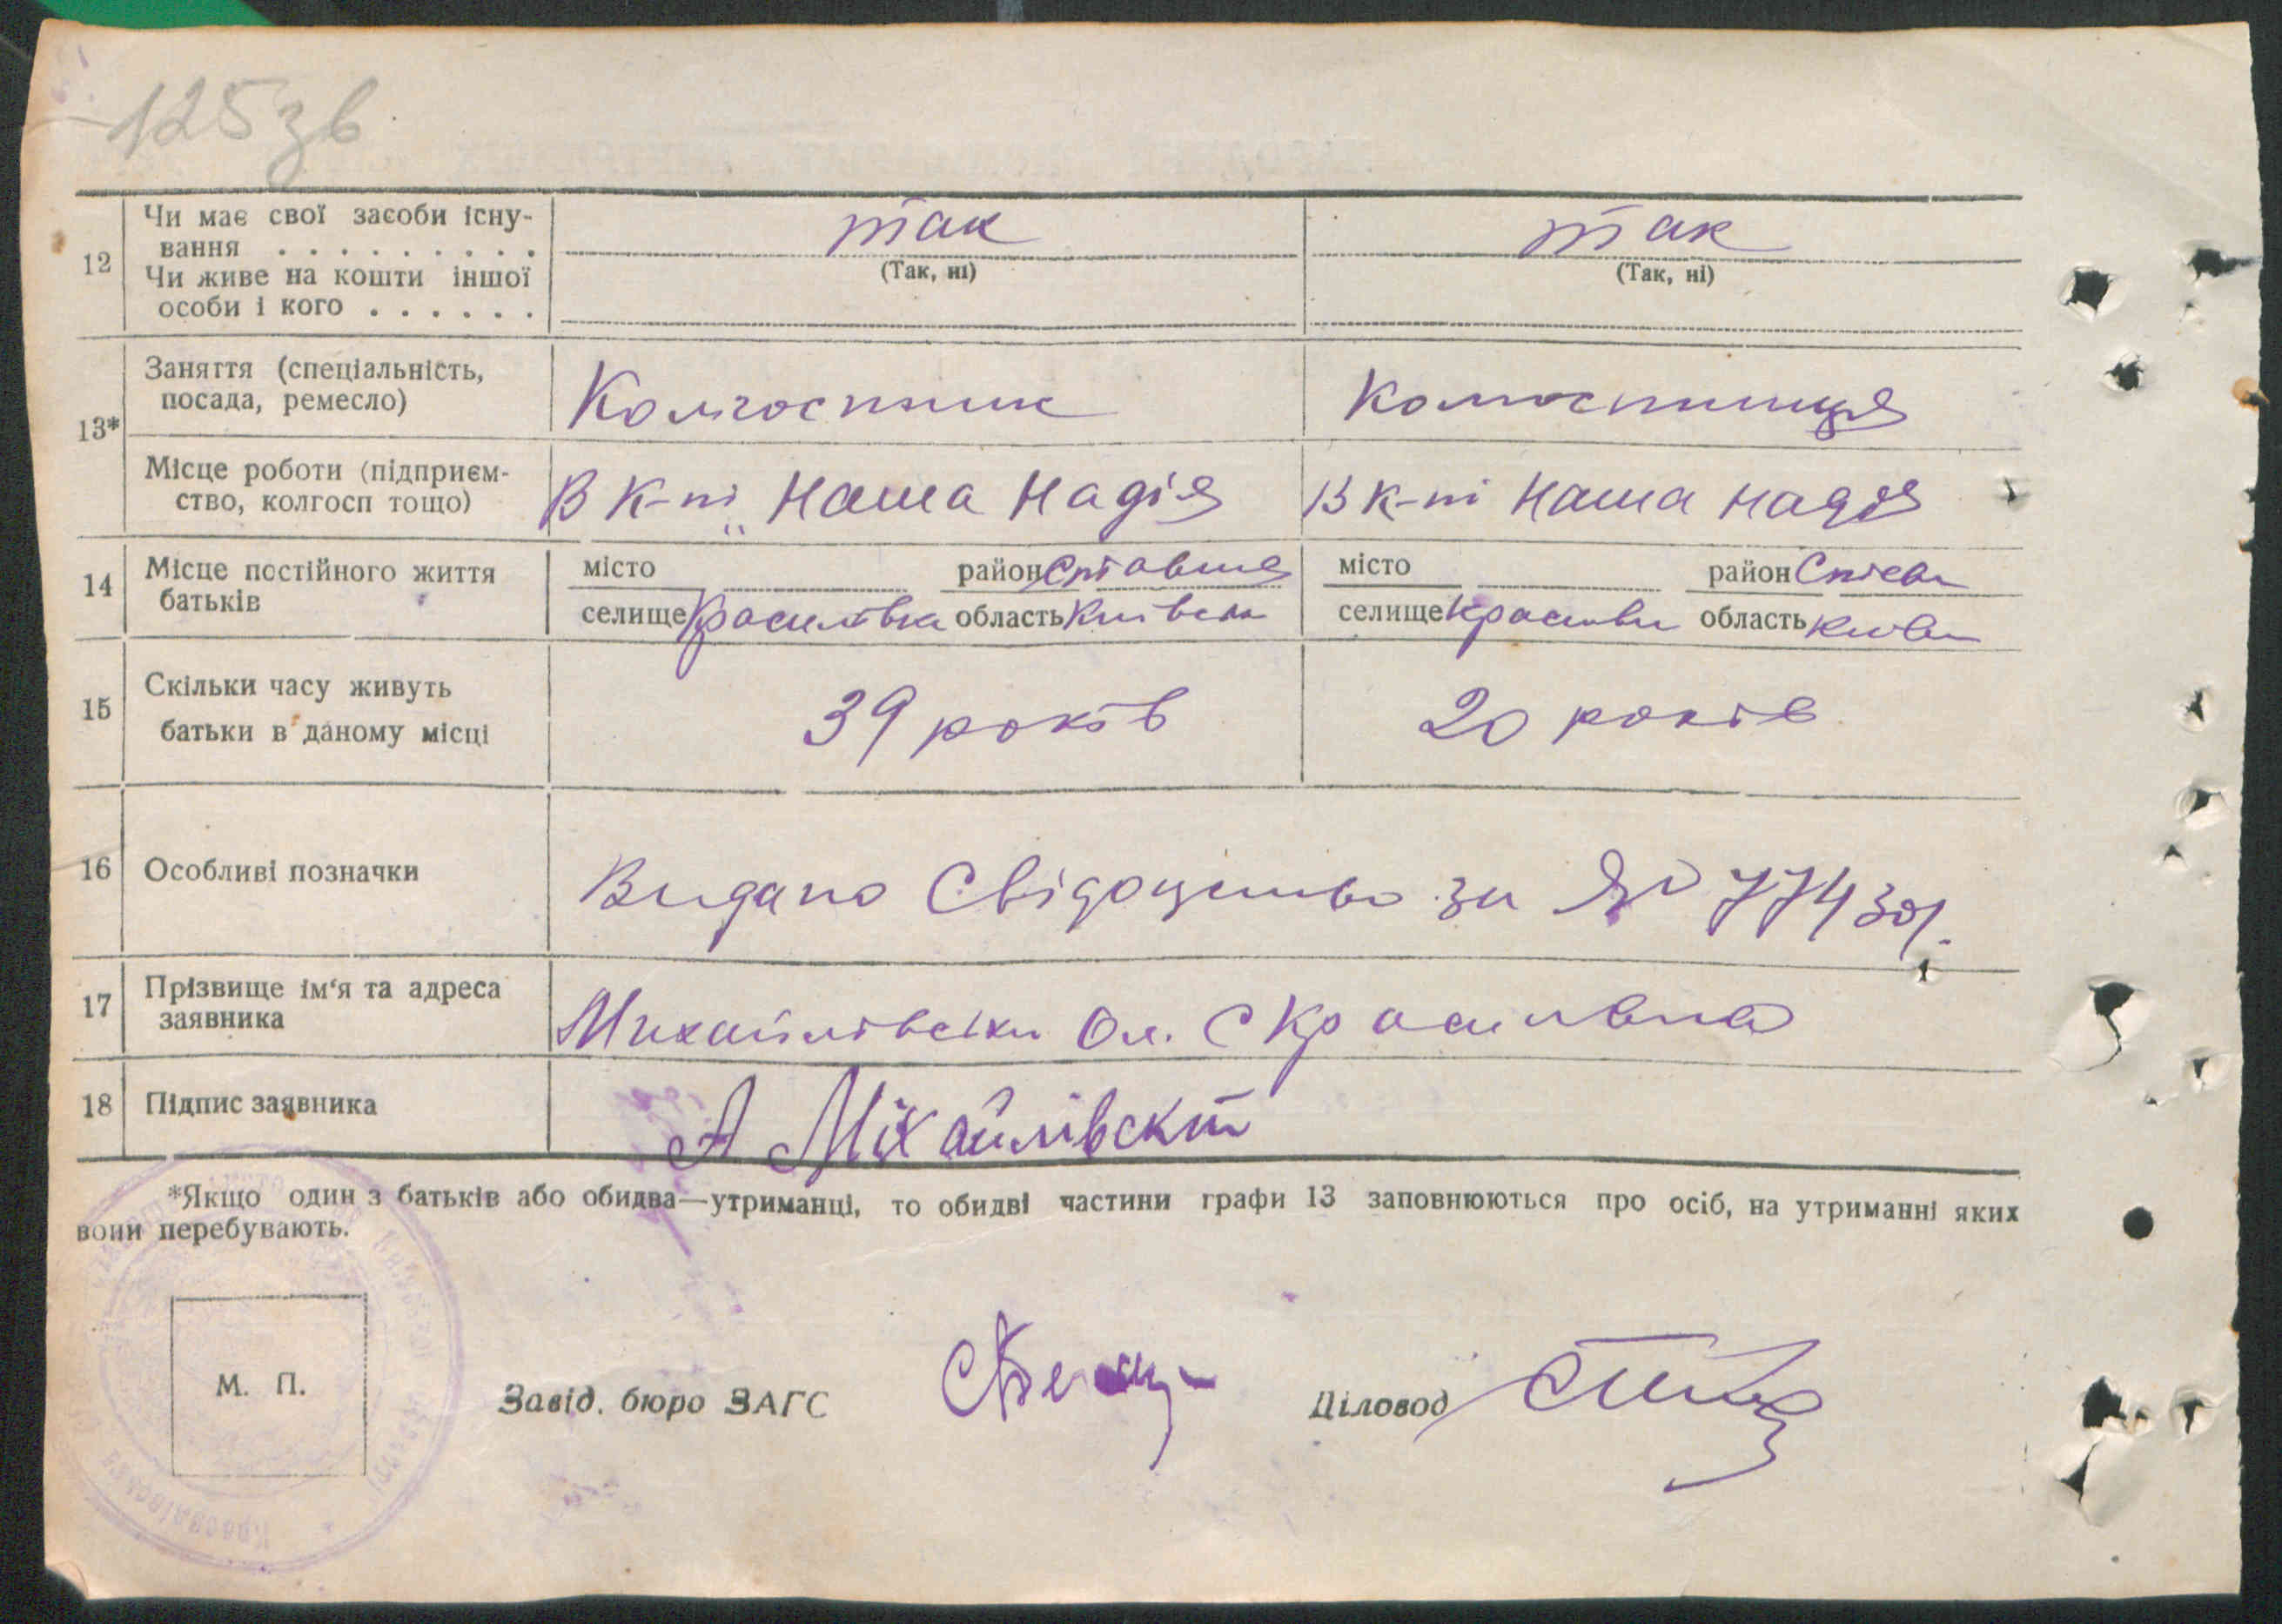 125зв
12 Чи має свої засоби існу-
вання . . . . . . . . . так так
(Так, ні) (Так, ні)
Чи живе на кошти іншої
особи і кого . . . . . .
13* Заняття (спеціальність,
посада, ремесло) Колгоспник Колгоспниця
Місце роботи (підприєм-
ство, колгосп тощо) В к-пі „Наша Надія В к-пі Наша Надія
14 Місце постійного життя
батьків
місто район Ставище місто район
селище Красилівка область Київськ селище область
15 Скільки часу живуть
батьки в даному місці 39 років 20 років
16 Особливі позначки Видано Свідоцтво за № 77430/.
17 Прізвище ім'я та адреса
заявника Михайлівськи Ол. С Красилівка
18 Підпис заявника А Міхайлівскій
*Якщо один з батьків або обидва—утриманці, то обидві частини графи 13 заповнюються про осіб, на утриманні яких
вони перебувають.
М. П.
Завід. бюро ЗАГС Діловод